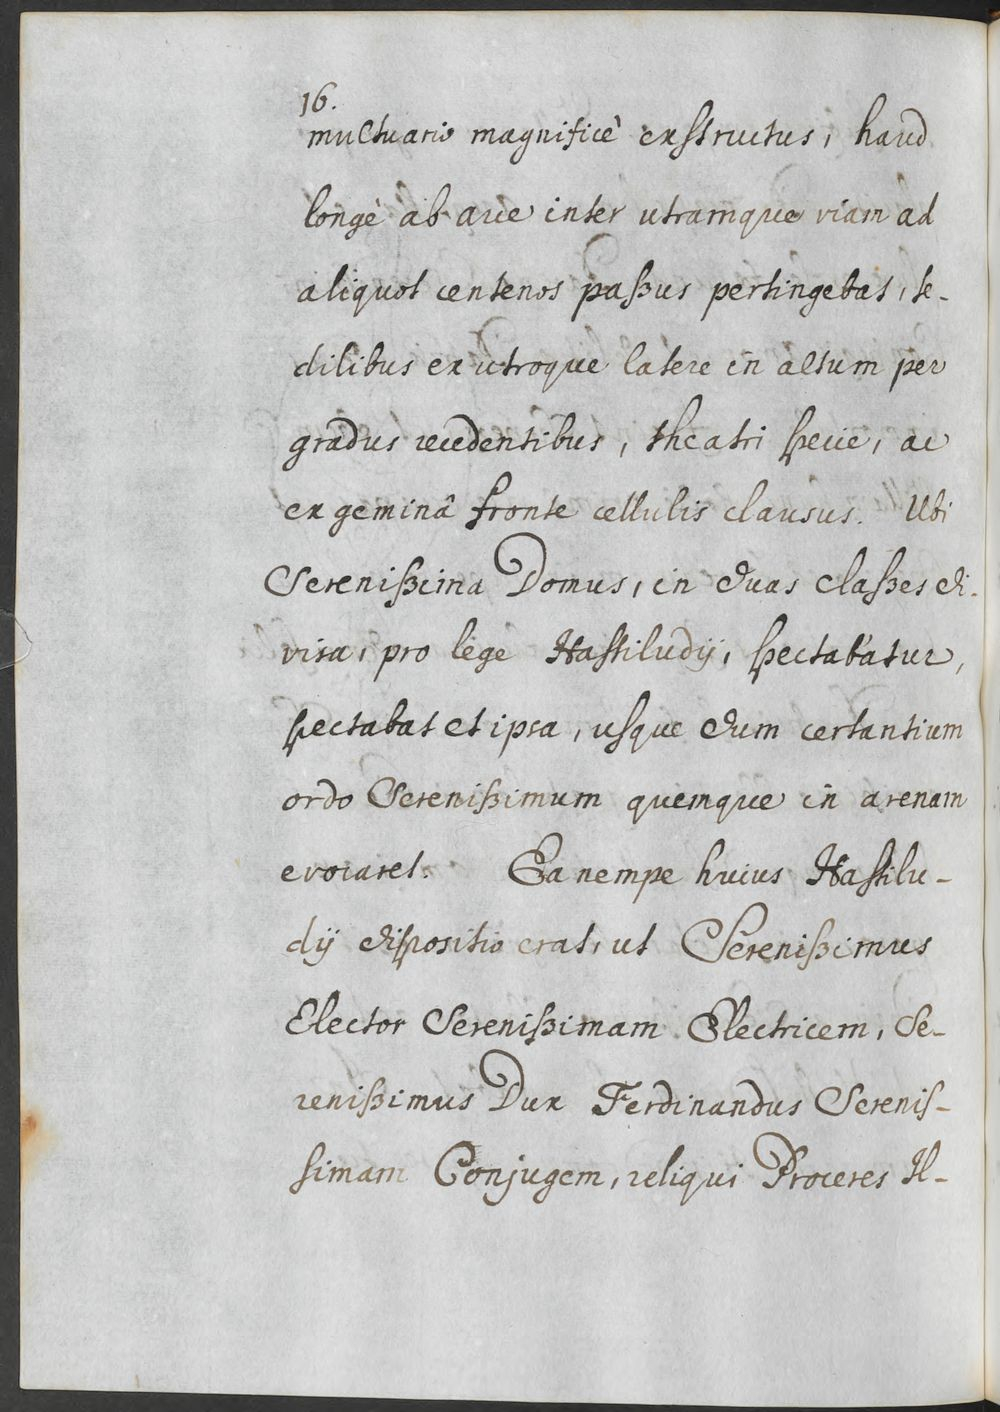 16.
muctuario magnificè exstructus, haud
longè ab arce inter utramque viam ad
aliquot centenos paßus pertingebat, se-
dilibus ex utroque latere in altum per
gradus recedentibus, theatri specie, ac
ex geminâ fronte cellulis clausus. Ubi
Sereniß​ima Domus, in duas claßes di-
visa, pro lege Hastiludij, spectabatur,
spectabat et ipsa, usque dum certantium
ordo Serenißimum quemque in arenam
evocaret. Ea nempe huius Hastilu-
dij dispositio erat, ut Serenißimus
Elector Serenißimam Electricem, Se-
renißimus Dux Ferdinandus Serenis-
simam Conjugem, reliqui Proceres Il-